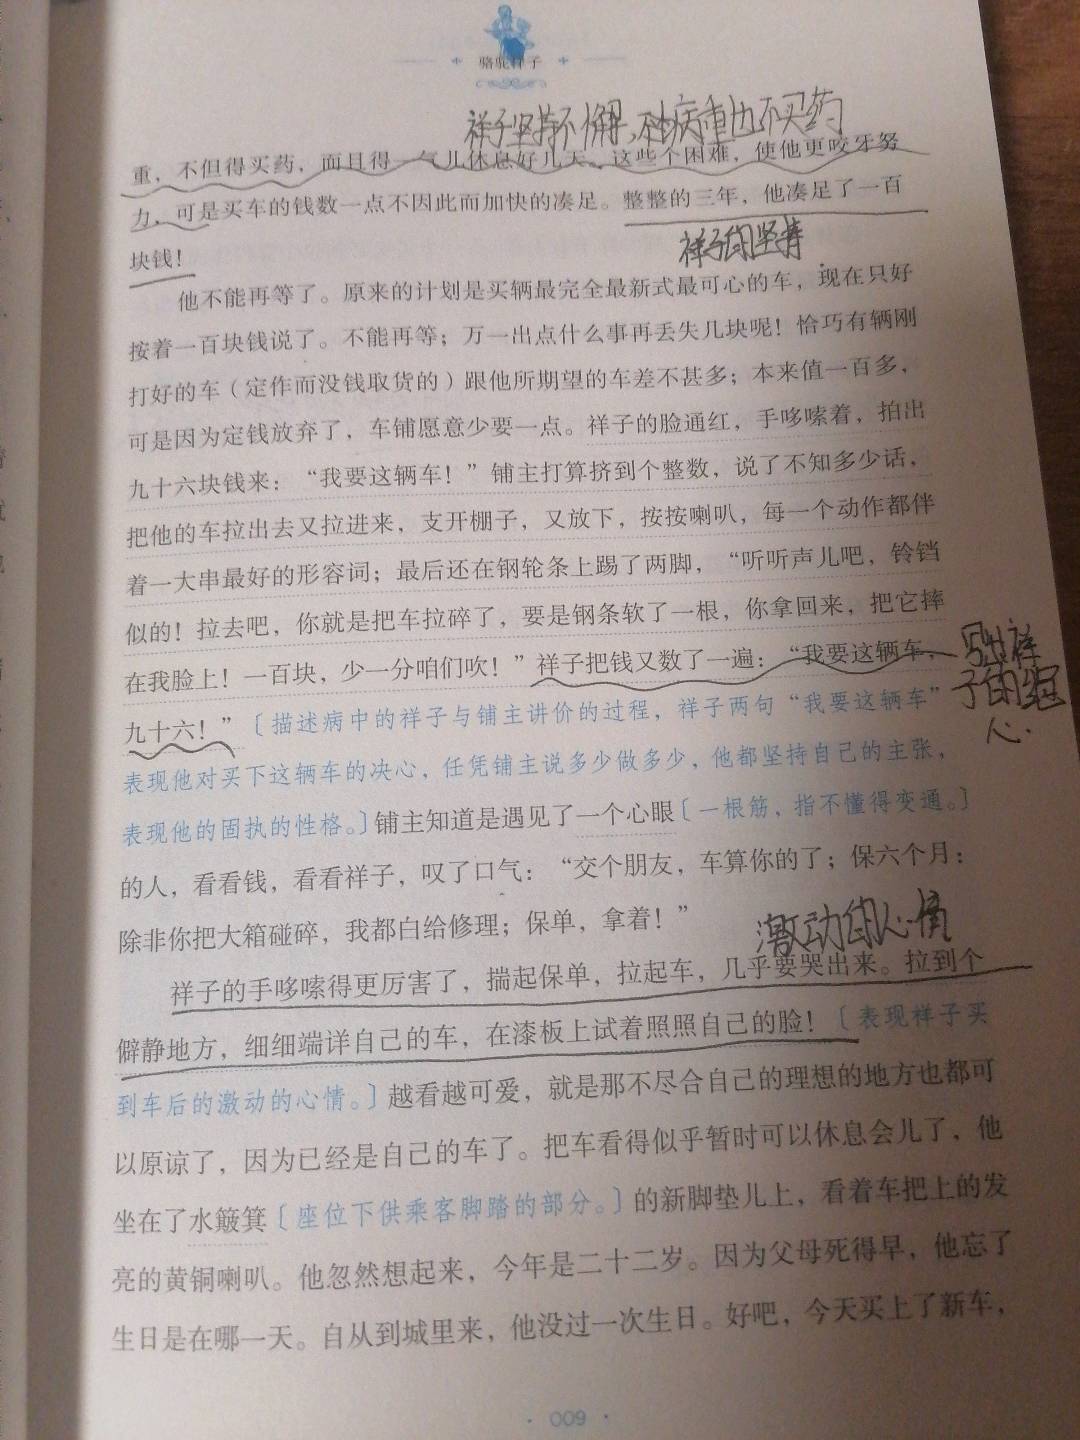 骆驼祥子
祥子坚持不懈,不过病重也不买药
重，不但得买药，而且得一气儿休息好几天。这些个困难，使他更咬牙努
力，可是买车的钱数一点不因此而加快的凑足。整整的三年，他凑足了一百
块钱！
祥子的坚持
他不能再等了。原来的计划是买辆最完全最新式最可心的车，现在只好
按着一百块钱说了。不能再等；万一出点什么事再丢失几块呢！恰巧有辆刚
打好的车（定作而没钱取货的）跟他所期望的车差不甚多；本来值一百多，
可是因为定钱放弃了，车铺愿意少要一点。祥子的脸通红，手哆嗦着，拍出
九十六块钱来：“我要这辆车！”铺主打算挤到个整数，说了不知多少话，
把他的车拉出去又拉进来，支开棚子，又放下，按按喇叭，每一个动作都伴
着一大串最好的形容词；最后还在钢轮条上踢了两脚，“听听声儿吧，铃铛
似的！拉去吧，你就是把车拉碎了，要是钢条软了一根，你拿回来，把它摔
在我脸上！一百块，少一分咱们吹！”祥子把钱又数了一遍：“我要这辆车，
写出祥
子的决
心.
九十六！”〔描述病中的祥子与铺主讲价的过程，祥子两句“我要这辆车”
表现他对买下这辆车的决心，任凭铺主说多少做多少，他都坚持自己的主张，
表现他的固执的性格。〕铺主知道是遇见了一个心眼〔一根筋，指不懂得变通。〕
的人，看看钱，看看祥子，叹了口气：“交个朋友，车算你的了；保六个月：
除非你把大箱碰碎，我都白给修理；保单，拿着！”
激动的心情
祥子的手哆嗦得更厉害了，揣起保单，拉起车，几乎要哭出来。拉到个
僻静地方，细细端详自己的车，在漆板上试着照照自己的脸！〔表现祥子买
到车后的激动的心情。〕越看越可爱，就是那不尽合自己的理想的地方也都可
以原谅了，因为已经是自己的车了。把车看得似乎暂时可以休息会儿了，他
坐在了水簸箕〔座位下供乘客脚踏的部分。〕的新脚垫儿上，看着车把上的发
亮的黄铜喇叭。他忽然想起来，今年是二十二岁。因为父母死得早，他忘了
生日是在哪一天。自从到城里来，他没过一次生日。好吧，今天买上了新车，
· 009 ·